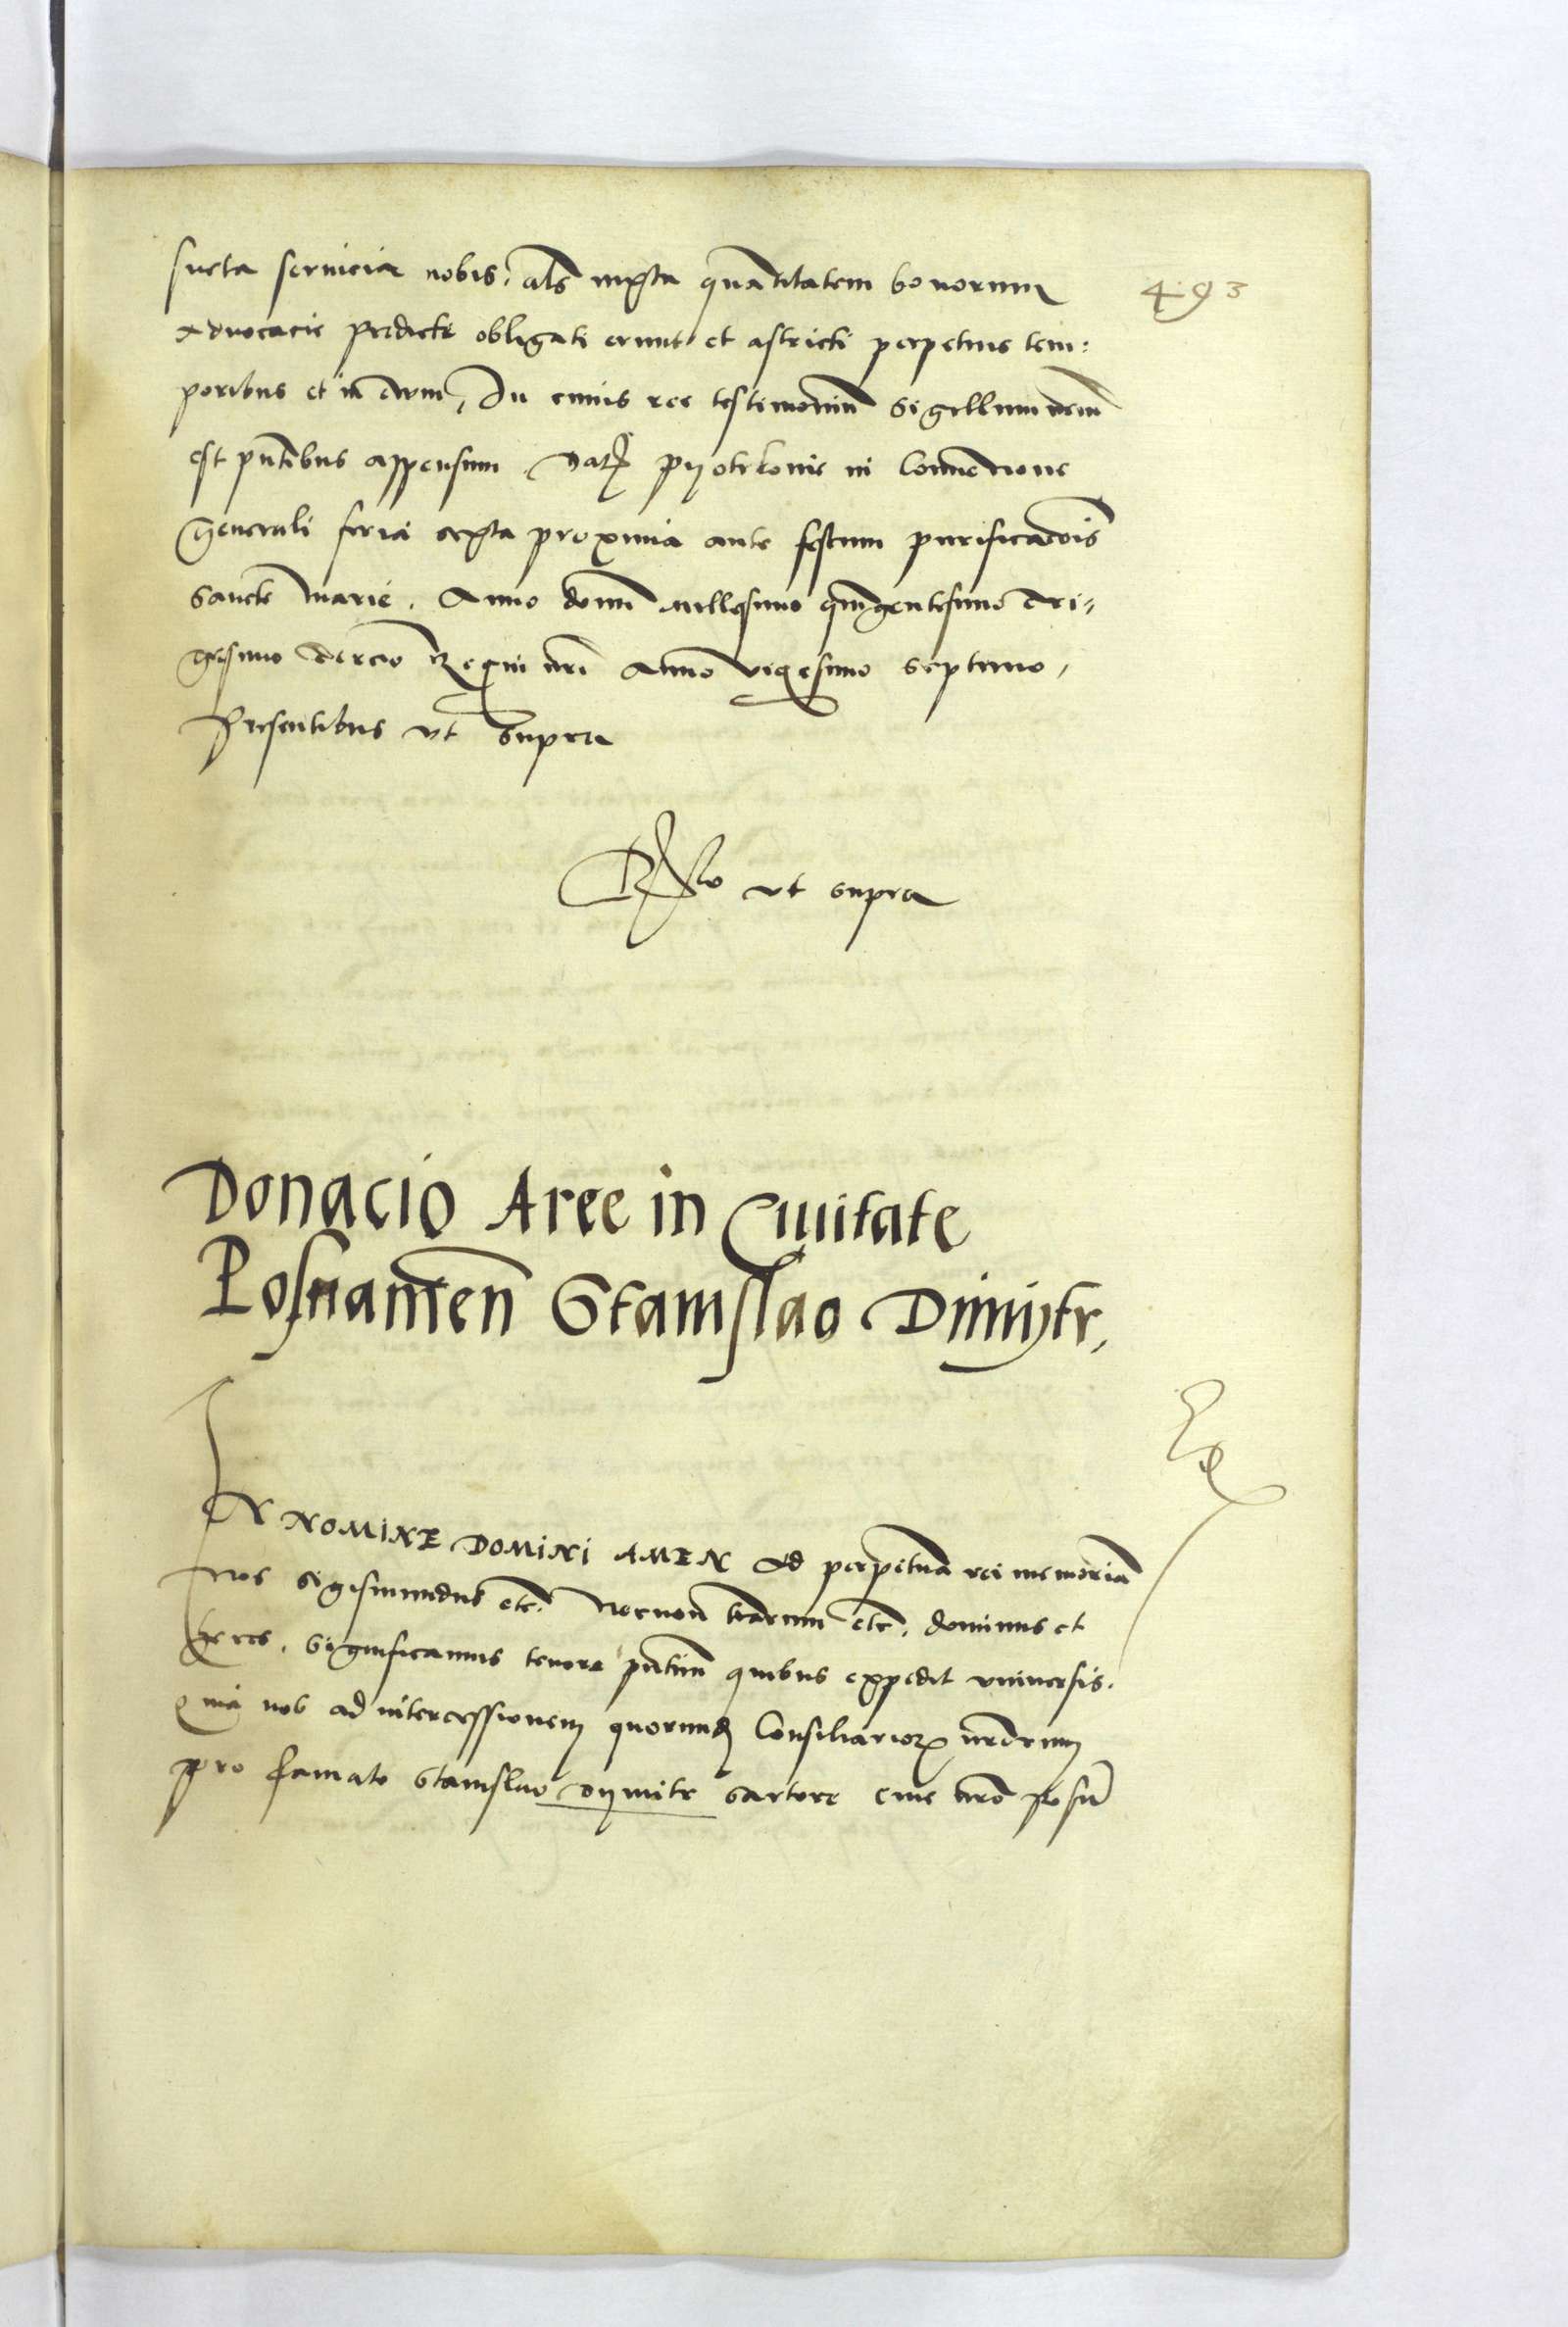 sueta seruicia nobis, als iuxta quātitatem bonorum
493
Aduocacie predicte obligati erunt et astricti perpetuis tem:
poribus et in euum, In cuius rei testimoniū Sigillum nrm̄
est pn̄tibus appensum Dat Pyotrkouie in Conuencione
Generali feria sexta proxima ante festum purificacōis
Sancte Marie. Anno domī millesimo quīgentesimo tri-
gesimo tercio Regni nr̄i Anno vigesimo septimo,
Presentibus vt Supra
Rlo vt supra
Donacio Aree in Ciuitate
Posnanien̄ Stanislao Dimytr.
IN NOMINE DOMINI AMEN Ad perpetuā rei memoriā
Nos Sigismundus etc. Necnon trarum etc. dominus et
heres. Significamus tenore pn̄tium quibus expedit vniuersis.
Quia nos ad intercessionem quorund Consiliarior nr̄orum
pro famato Stanislao Dymitr sartore ciue nr̄o posn̄